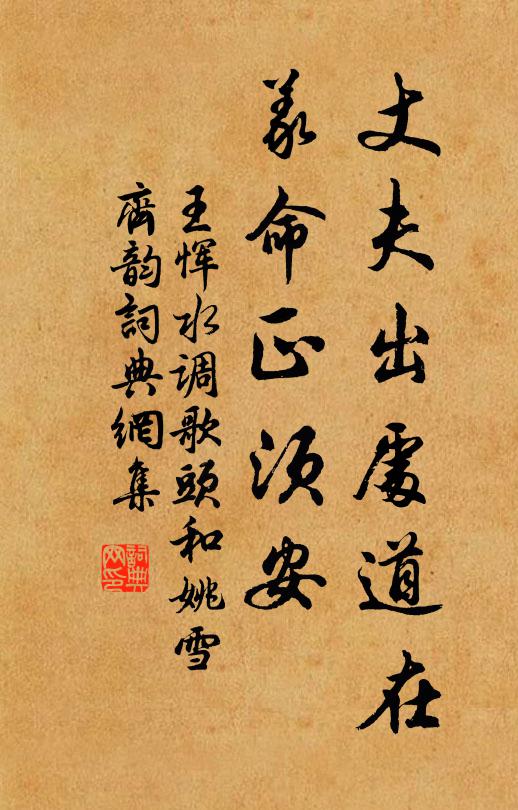 丈夫出處道在
義命正須安
王惲水调歌頭和姚雪
齋韵詞典網集
詞典网印